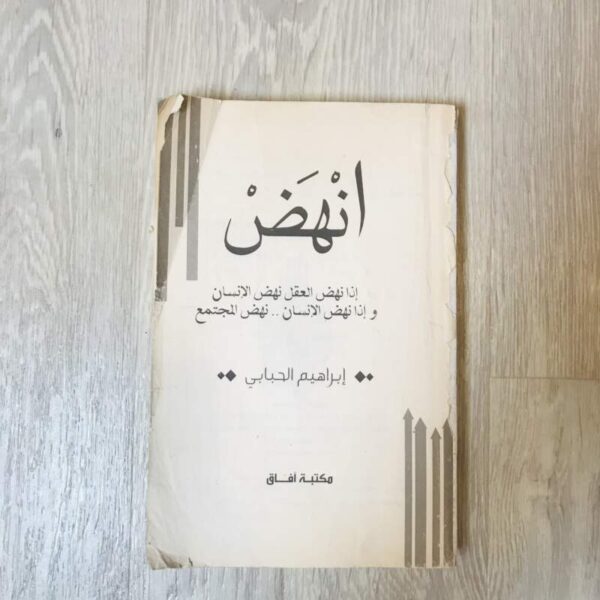 انْهَضْ
إذا نهض العقل نهض الإنسان
و إذا نهض الإنسان .. نهض المجتمع
إبراهيم الحبابي
مكتبة آفاق